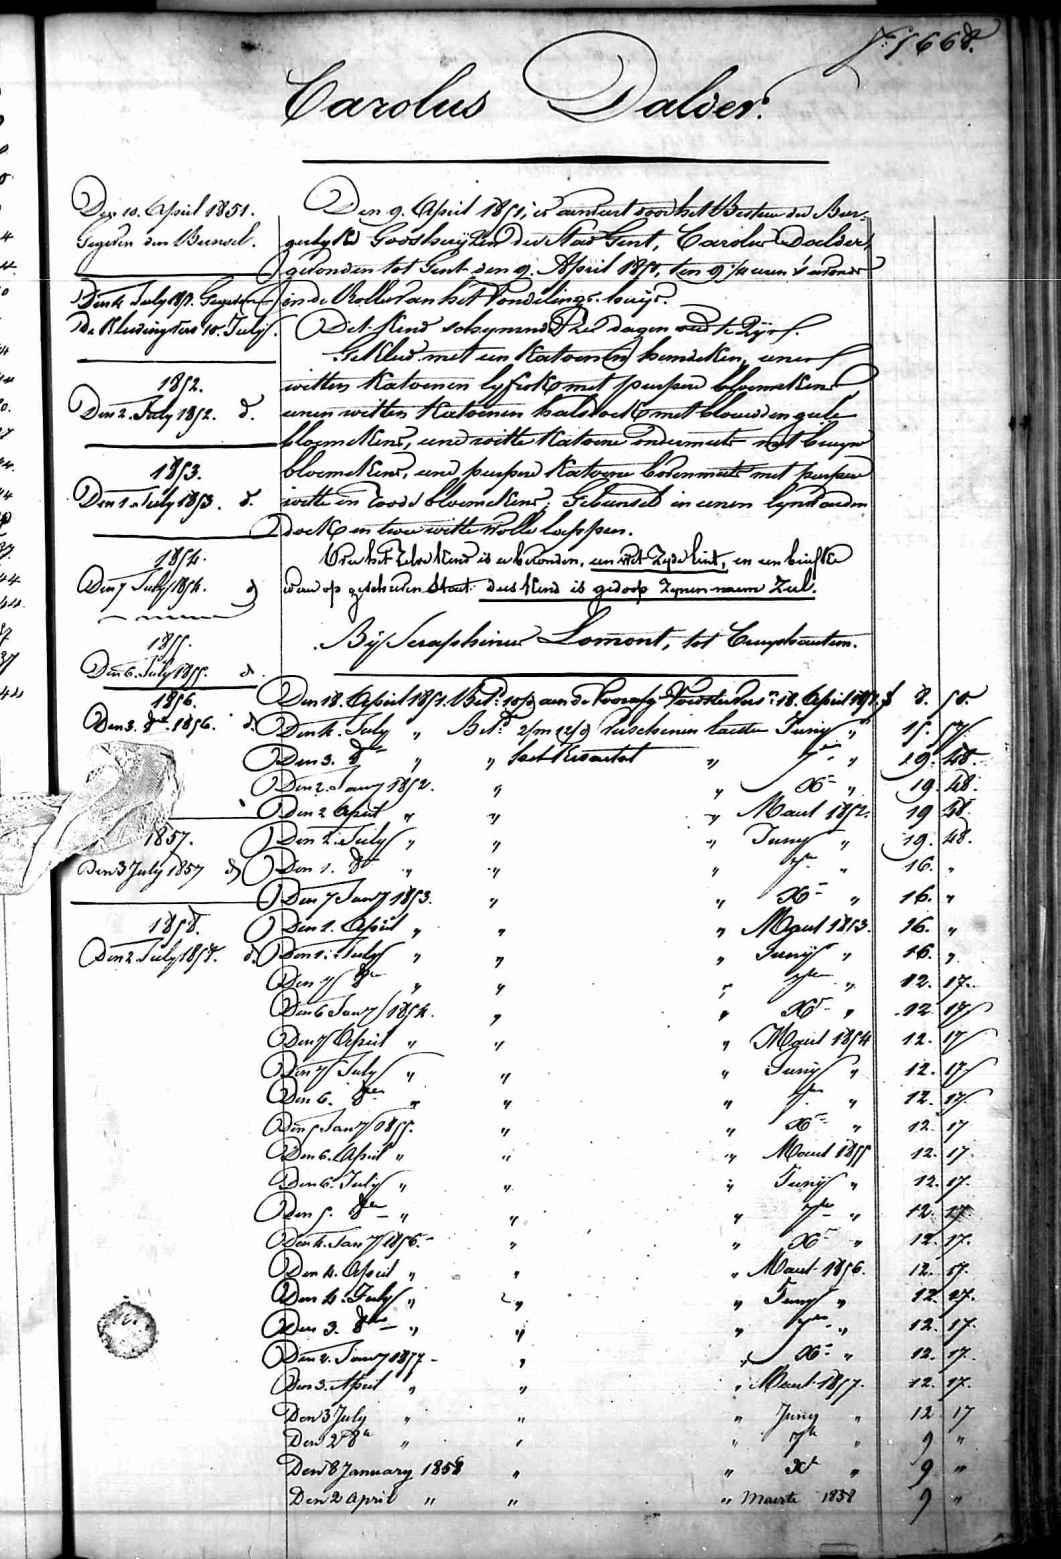 N° 1668.
Carolus Dalder.
Den 10. April 1851.
Gegeven den Bunsel.
Den 4 July 1851. Gegeven
de Kleedingsten 10. July.
1852.
Den 2. July 1852. d.
1853.
Den 1. July 1853. d.
1854.
Den 7 July 1854. d
1855.
Den 6. July 1855. d.
1856.
Den 3. 8er 1856. d
1857.
Den 3 July 1857 d
1858.
Den 2 July 1858. d.
Den 9. April 1851, is aenveert door het Bestuer der Bur-
gerlyke Godshuyzen der Stad Gent, Carolus Dalder,
gevonden tot Gent den 9. April 1851, ten 9 1/4 uren 's avonds
in de Rolle van het Vondelings-huys.
Dit kind schynende zes dagen oud te zyn.
Gekleed met een katoenen hemdeken, eenen
witten katoenen lyfrok met purpere bloemekens
eenen witten katoenen halsdoek met blauw en geele
bloemekens, eene witte katoene ondermuts met bruyne
bloemekens, eene purpere katoene bovenmuts met purpere
witte en roode bloemekens; Gebunseld in eenen lynwaeden
doek en twee witte wolle lappen.
Over het zelve kind is er bevonden, een wit zyde lint, en een briefke
waer op geschreven staet: dees kind is gedoop zynen naem Zul.
By Seraphinus Lomont, tot Cruyshautem.
Den 18. April 1851. Bet. aen de Voorsten 18. April 1851. f 8. 50.
Den 4. July " Bet. 2/m 12/d verschenen laesten Juny " 15. 57.
Den 3. 8er " " laest kwartael " 7er " 19. 48.
Den 2. Jany 1852. " " Xr " 19. 48.
Den 2 April " " " Maert 1852. 19 48.
Den 2. July " " " Juny " 19. 48.
Den 1. 8er " " " 7er " 16. "
Den 7 Jany 1853. " " Xr " 16. "
Den 1. April " " " Maert 1853. 16. "
Den 1. July " " " Juny " 16. "
Den 7 8er " " " 7er " 12. 17.
Den 6 Jany 1854. " " Xr " 12 17
Den 7 April " " " Maert 1854 12. 17
Den 7 July " " " Juny " 12. 17
Den 6. 8er " " " 7er " 12. 17
Den 5 Jany 1855. " " Xr " 12. 17
Den 6. April " " " Maert 1855 12. 17.
Den 6. July " " " Juny " 12. 17.
Den 5. 8er " " " 7er " 12. 17.
Den 4. Jany 1856. " " Xr " 12. 17.
Den 4. April " " " Maert 1856. 12. 17.
Den 4. July " " " Juny " 12. 17.
Den 3. 8er " " " 7er " 12. 17.
Den 2. Jany 1857 " " Xr " 12. 17.
Den 3. April " " " Maert 1857. 12. 17.
Den 3 July " " " Juny " 12 17
Den 2 8er " " " 7er " 9 "
Den 8 January 1858 " " Xr " 9 "
Den 2 April " " " Maerte 1858 9 "